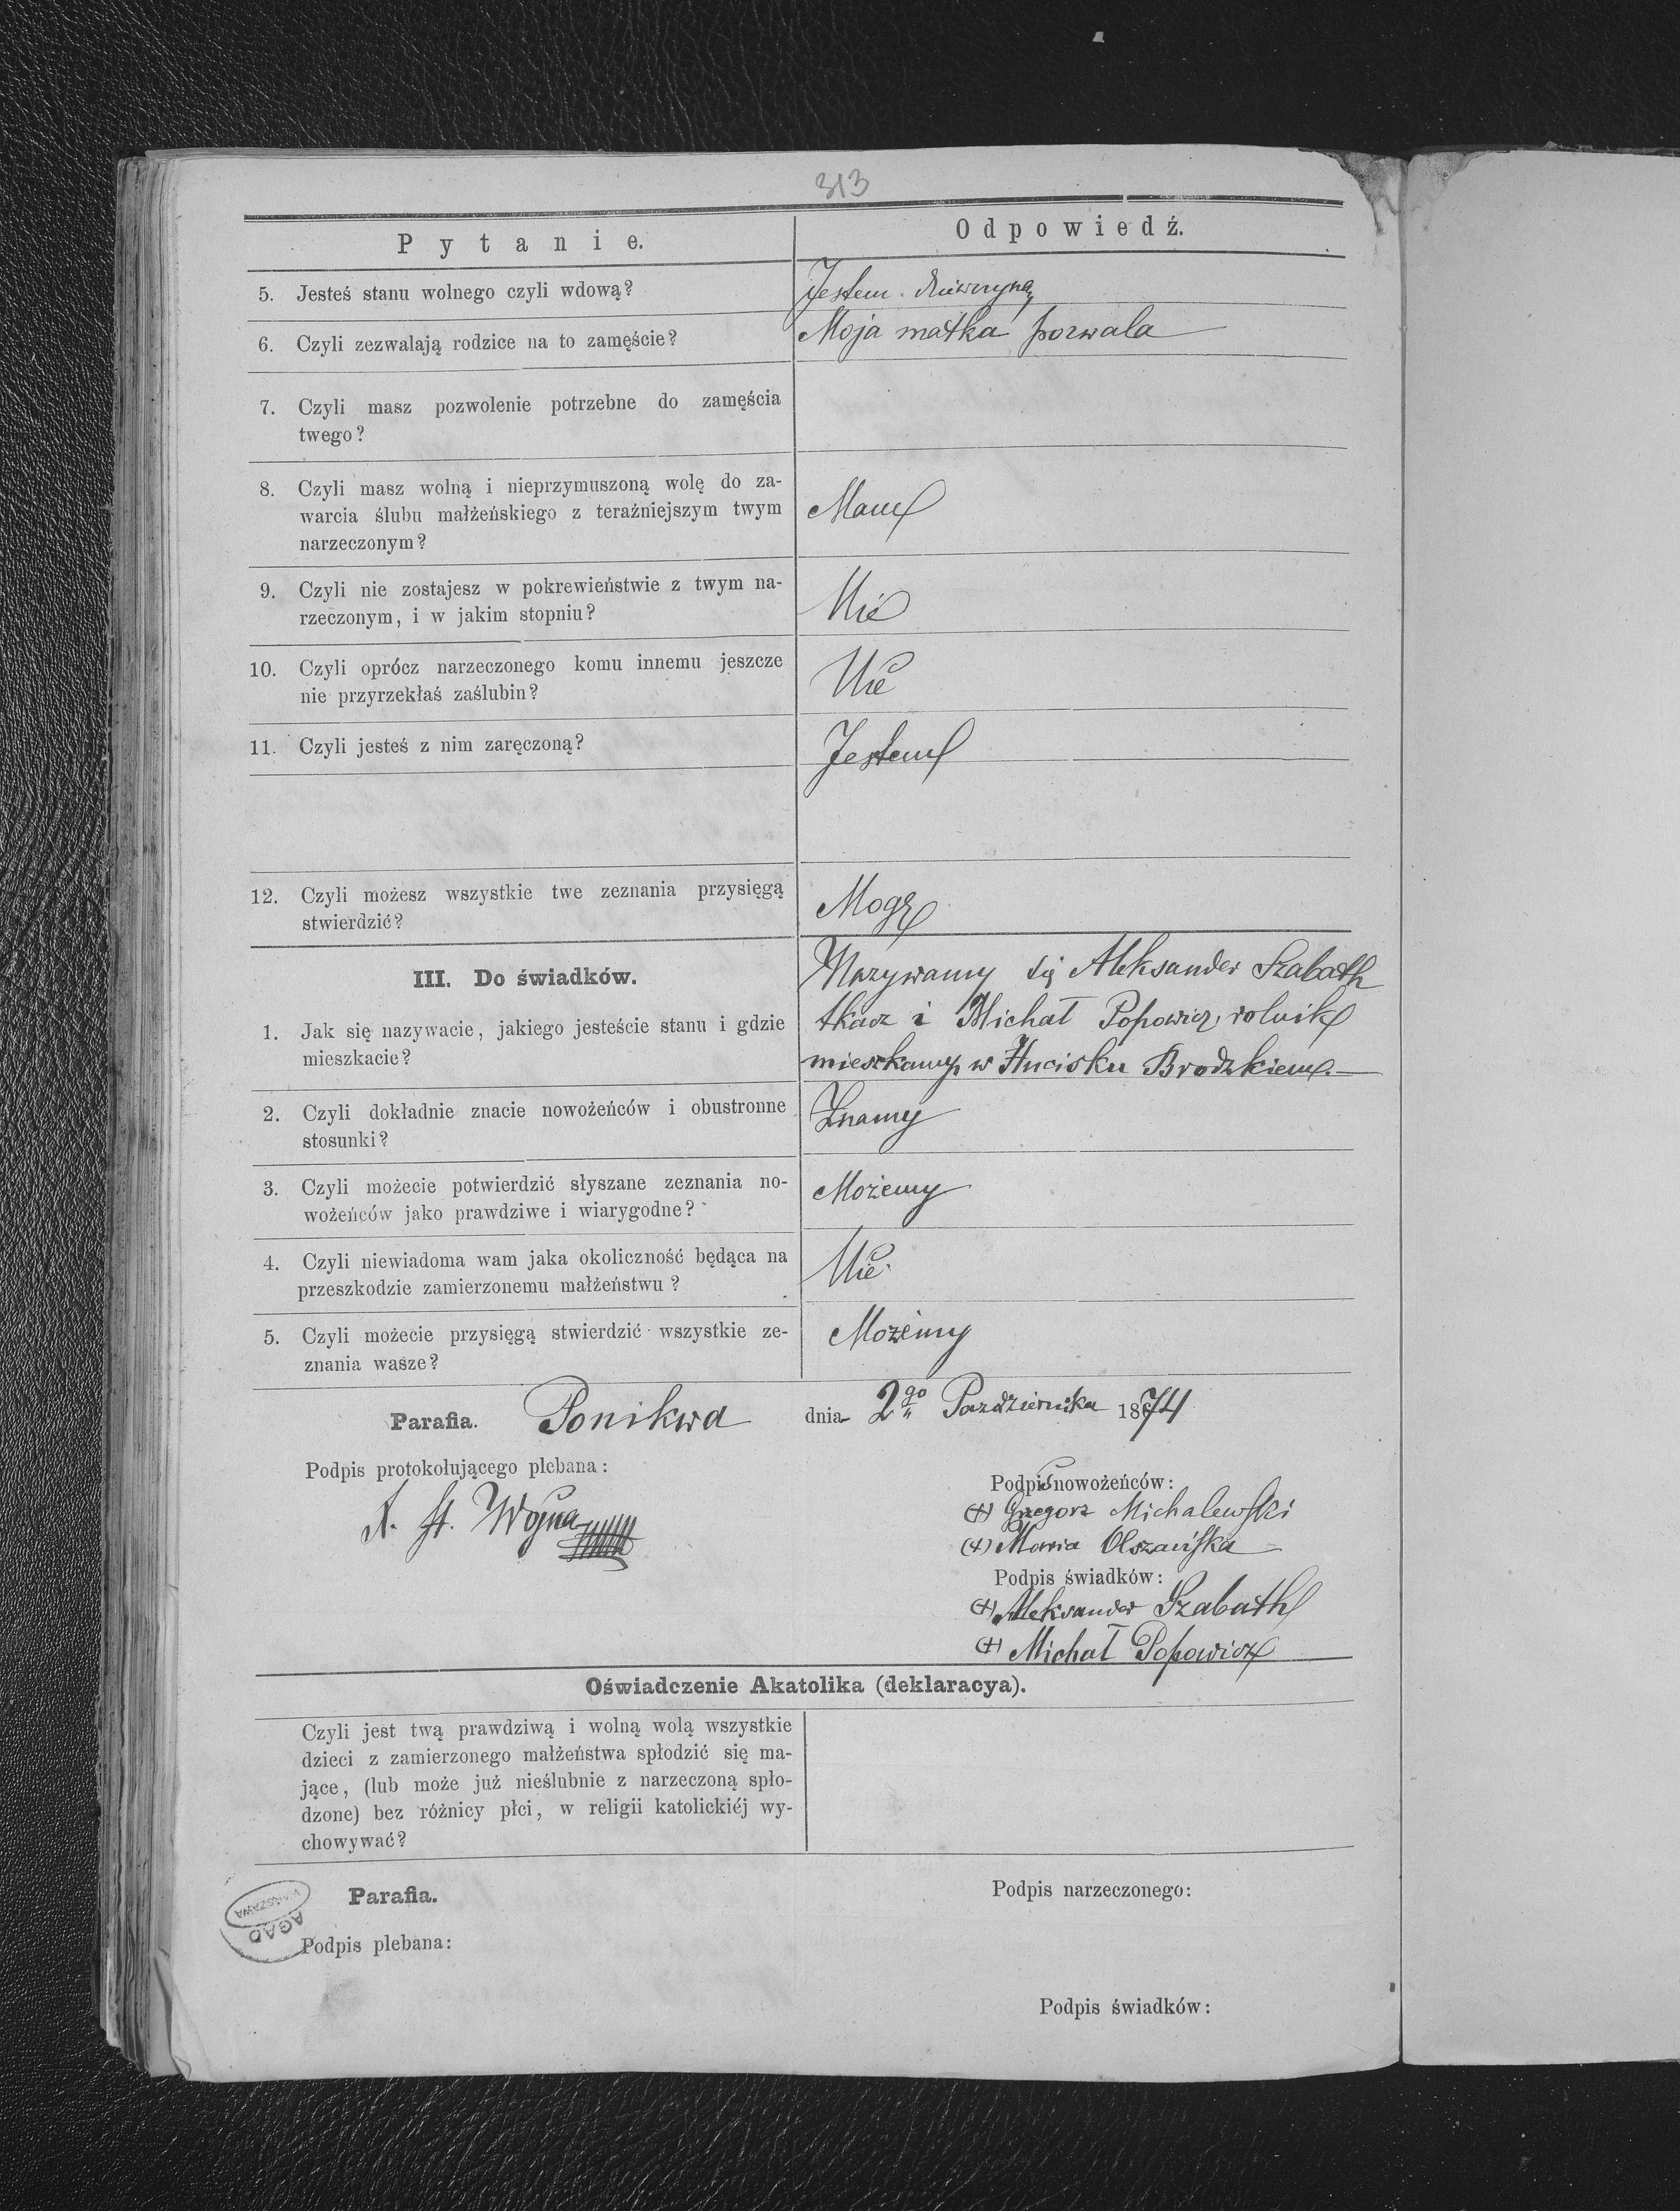 313
Pytanie.
Odpowiedź.
5. Jesteś stanu wolnego czyli wdową?
Jestem dziewczyną
6. Czyli zezwalają rodzice na to zamęście?
Moja matka pozwala
7. Czyli masz pozwolenie potrzebne do zamęścia
twego?
8. Czyli masz wolną i nieprzymuszoną wolę do za-
warcia ślubu małżeńskiego z teraźniejszym twym
narzeczonym?
Mam
9. Czyli nie zostajesz w pokrewieństwie z twym na-
rzeczonym, i w jakim stopniu?
Nie
10. Czyli oprócz narzeczonego komu innemu jeszcze
nie przyrzekłaś zaślubin?
Nie
11. Czyli jesteś z nim zaręczoną?
Jestem
12. Czyli możesz wszystkie twe zeznania przysięgą
stwierdzić?
Mogę
III. Do świadków.
1. Jak się nazywacie, jakiego jesteście stanu i gdzie
mieszkacie?
Nazywamy się Aleksander Szabath
tkacz i Michał Popowicz, rolnik
mieszkamy w Hucisku Brodzkiem.
2. Czyli dokładnie znacie nowożeńców i obustronne
stosunki?
Znamy
3. Czyli możecie potwierdzić słyszane zeznania no-
wożeńców jako prawdziwe i wiarygodne?
Możemy
4. Czyli niewiadoma wam jaka okoliczność będąca na
przeszkodzie zamierzonemu małżeństwu?
Nie.
5. Czyli możecie przysięgą stwierdzić wszystkie ze-
znania wasze?
Możemy
Parafia. Ponikwa dnia 2go Października 1874
Podpis protokołującego plebana:
X. St. Wojna
Podpis nowożeńców:
(+) Grzegorz Michalewski
(+) Maria Olszańska
Podpis świadków:
(+) Aleksander Szabath
(+) Michał Popowicz
Oświadczenie Akatolika (deklaracya).
Czyli jest twą prawdziwą i wolną wolą wszystkie
dzieci z zamierzonego małżeństwa spłodzić się ma-
jące, (lub może już nieślubnie z narzeczoną spło-
dzone) bez różnicy płci, w religii katolickiéj wy-
chowywać?
Parafia.
Podpis narzeczonego:
AGAD
WARSZAWA
Podpis plebana:
Podpis świadków: